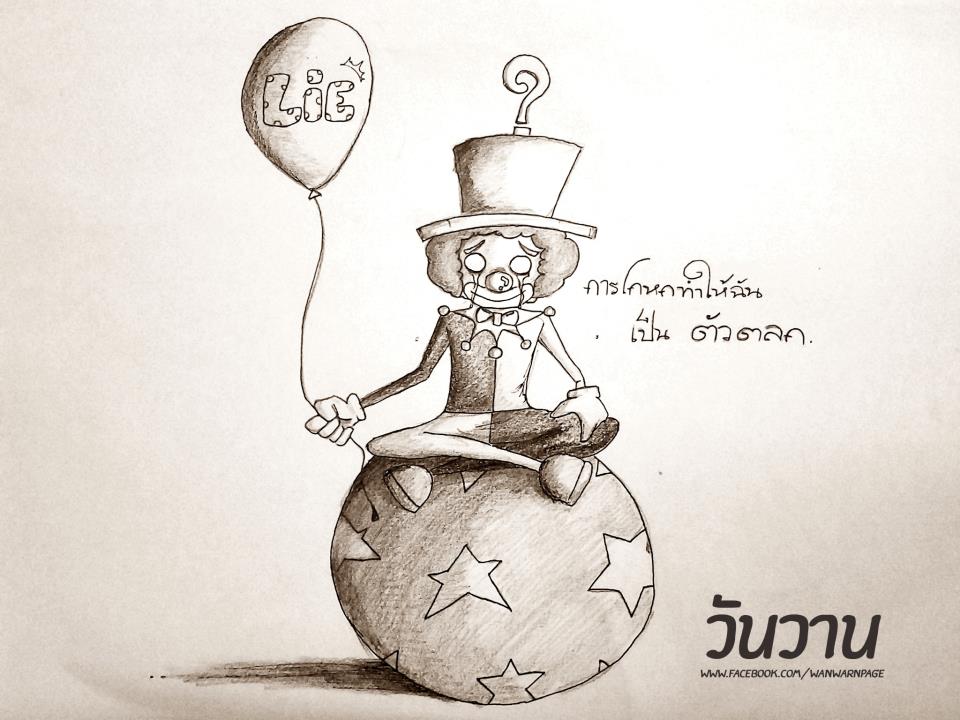 LiE
?
การโกหกทำให้ฉัน
เป็น ตัวตลก.
วันวาน
WWW.FACEBOOK.COM/WANWARNPAGE